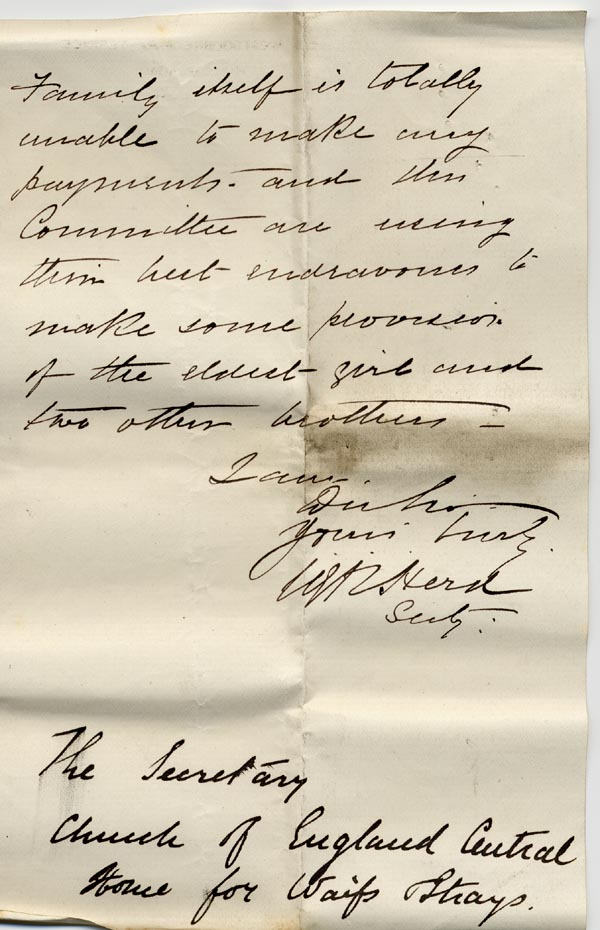 Family itself is totally
unable to make any
payments - and this
Committee are using
their best endeavours to
make some provision
of the eldest girl and
two other brothers -
I am
Dear Sir
Yours truly.
Herd
Secty.
The Secretary
Church of England Central
Home for Waifs & Strays.